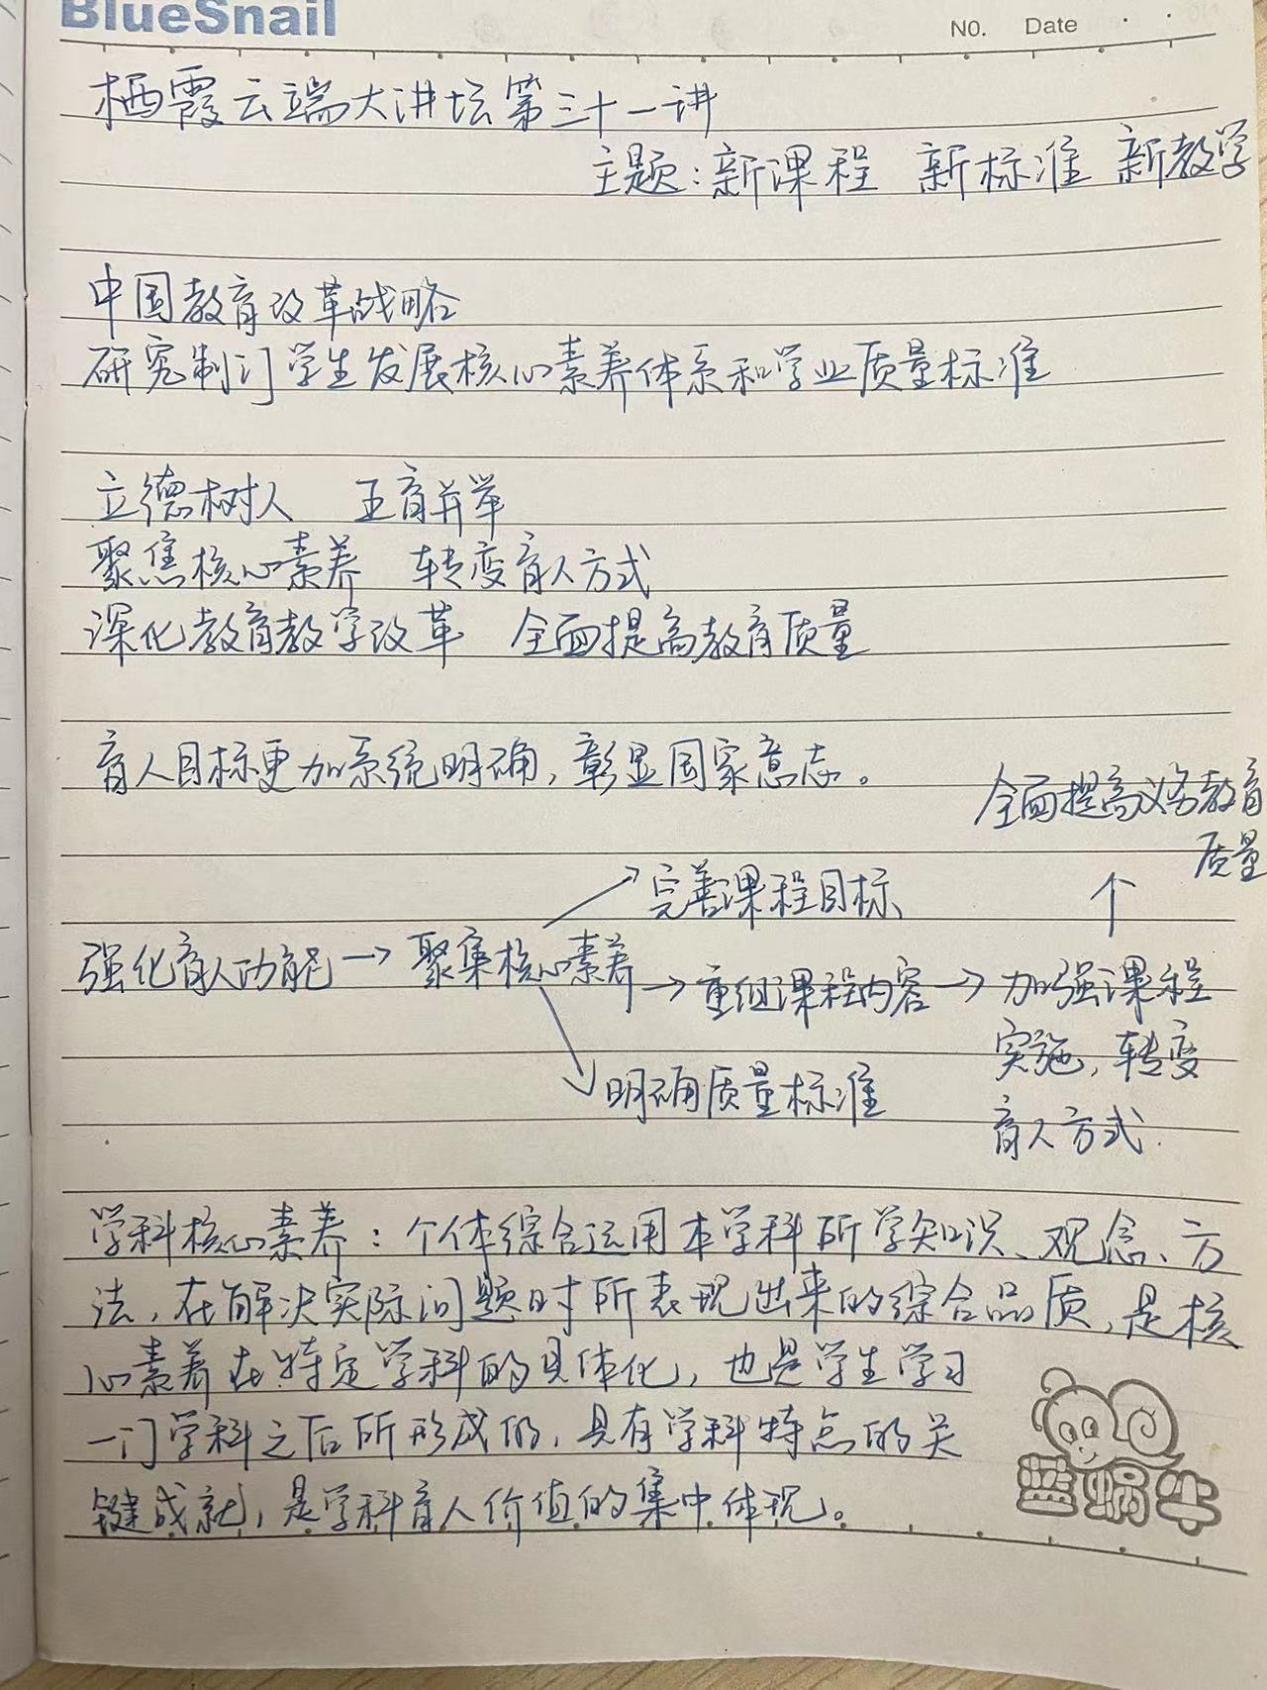 BlueSnail
NO. Date
栖霞云端大讲坛第三十一讲
主题:新课程 新标准 新教学
中国教育改革战略
研究制订学生发展核心素养体系和学业质量标准
立德树人 五育并举
聚焦核心素养 转变育人方式
深化教育教学改革 全面提高教育质量
育人目标更加系统明确,彰显国家意志。
全面提高义务教育
质量
↑
↗完善课程目标
强化育人功能→聚集核心素养→重组课程内容→加强课程
实施,转变
↘明确质量标准
育人方式.
学科核心素养:个体综合运用本学科所学知识、观念、方
法,在解决实际问题时所表现出来的综合品质,是核
心素养在特定学科的具体化,也是学生学习
一门学科之后所形成的,具有学科特点的关
键成就,是学科育人价值的集中体现。
蓝蜗牛